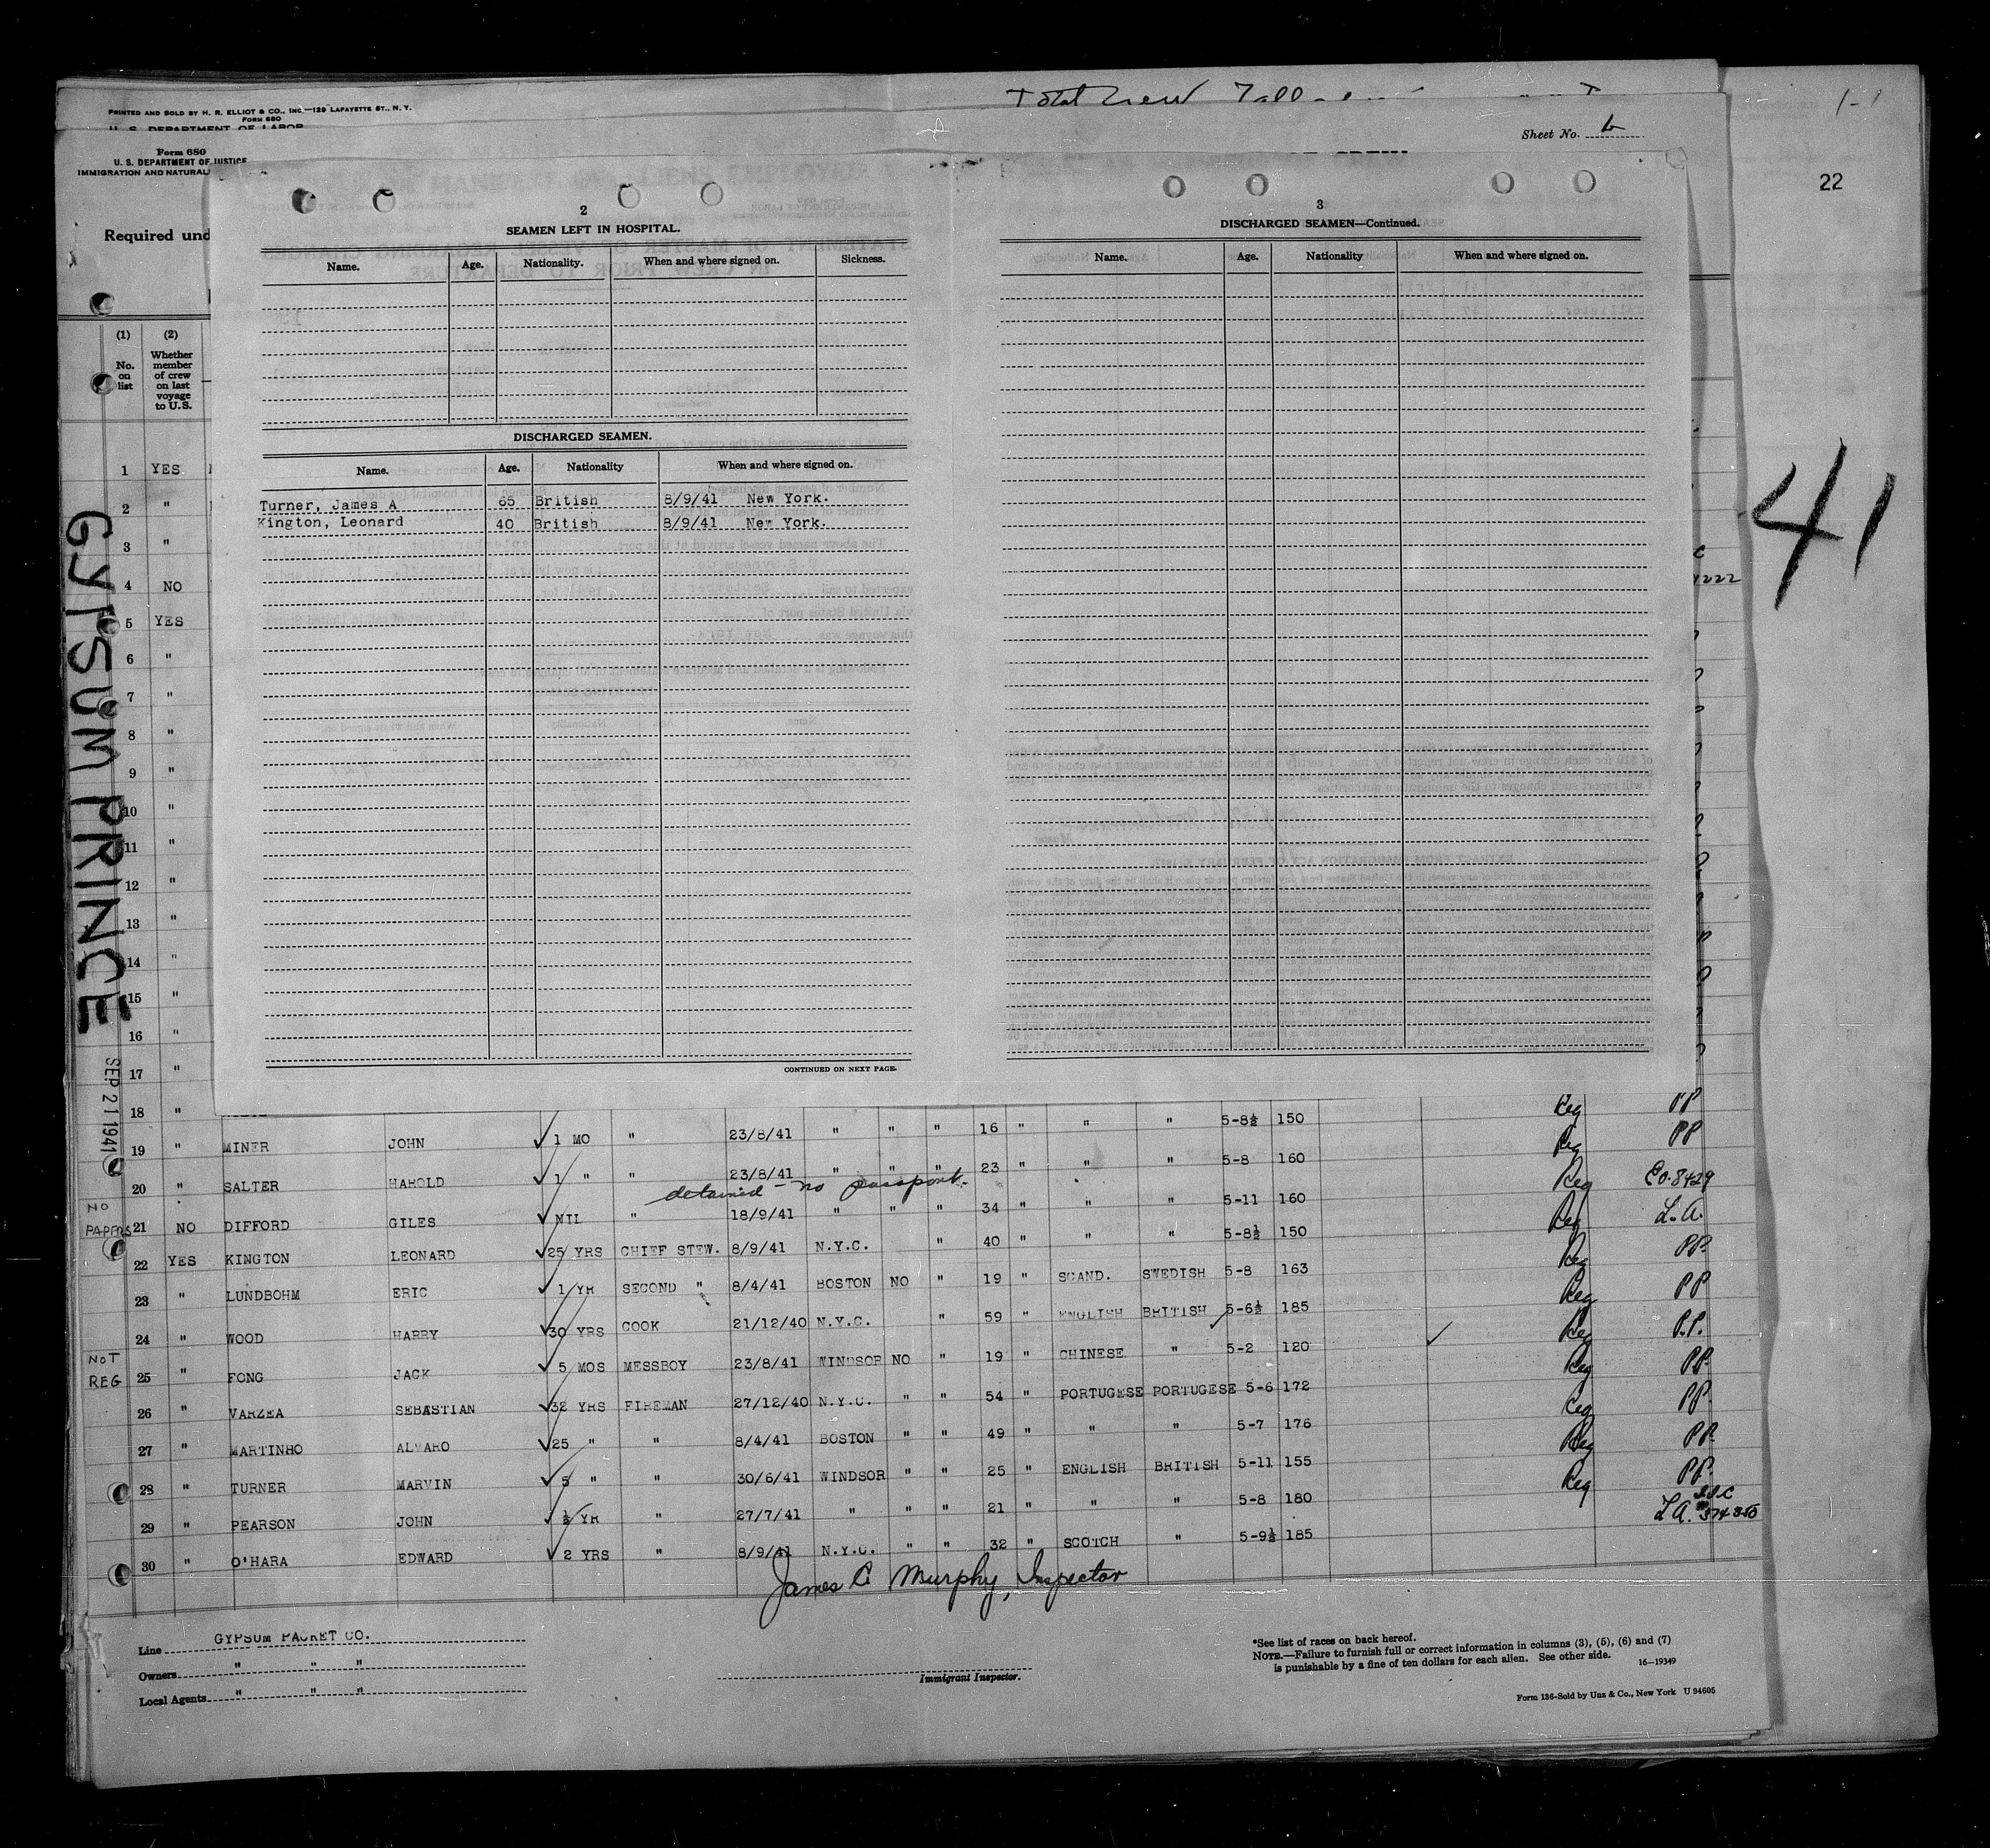 PRINTED AND SOLD BY H. R. ELLIOT & CO., INC.—129 LAFAYETTE ST., N. Y.
FORM 680
U. S. DEPARTMENT OF LABOR
Total Crew
Sheet No. 6
Form 680
U. S. DEPARTMENT OF JUSTICE
IMMIGRATION AND NATURAL
22
41
Required und
(1) (2)
No. on list
Whether member of crew on last voyage to U.S.
GYPSUM PRINCE
SEP 21 1941
2
SEAMEN LEFT IN HOSPITAL.
Name. Age. Nationality. When and where signed on. Sickness.
DISCHARGED SEAMEN.
Name. Age. Nationality When and where signed on.
Turner, James A 65 British 8/9/41 New York.
Kington, Leonard 40 British 8/9/41 New York.
CONTINUED ON NEXT PAGE.
3
DISCHARGED SEAMEN—Continued.
Name. Age. Nationality When and where signed on.
1 YES
2 "
3 "
4 NO
5 YES
6 "
7 "
8 "
9 "
10 "
11 "
12 "
13 "
14 "
15 "
16 "
17 "
18 "
19 " MINER JOHN 1 MO " 23/8/41 " " " 16 " " " 5-8½ 150 Reg PP
20 " SALTER HAROLD 1 " " 23/8/41 " " " 23 " " " 5-8 160 Reg PP
detained - no passport.
NO PAPERS 21 NO DIFFORD GILES NIL " 18/9/41 " " " 34 " " " 5-11 160 Reg CO-8429
22 YES KINGTON LEONARD 25 YRS CHIEF STEW. 8/9/41 N.Y.C. " 40 " " " 5-8½ 150 Reg L.A.
23 " LUNDBOHM ERIC 1 YR SECOND " 8/4/41 BOSTON NO " 19 " SCAND. SWEDISH 5-8 163 Reg PP.
24 " WOOD HARRY 30 YRS COOK 21/12/40 N.Y.C. " 59 " ENGLISH BRITISH 5-6½ 185 Reg PP
NOT REG 25 " FONG JACK 5 MOS MESSBOY 23/8/41 WINDSOR NO " 19 " CHINESE " 5-2 120 Reg P.P.
26 " VARZEA SEBASTIAN 32 YRS FIREMAN 27/12/40 N.Y.C. " " 54 " PORTUGESE PORTUGESE 5-6 172 Reg PP.
27 " MARTINHO ALVARO 25 " " 8/4/41 BOSTON " " 49 " " " 5-7 176 Reg PP.
28 " TURNER MARVIN 5 " " 30/6/41 WINDSOR " " 25 " ENGLISH BRITISH 5-11 155 Reg PP.
29 " PEARSON JOHN ½ YR " 27/7/41 " " " 21 " " " 5-8 180 Reg PP.
30 " O'HARA EDWARD 2 YRS " 8/9/41 N.Y.C. " " 32 " SCOTCH " 5-9½ 185 L.A.
James C Murphy, Inspector
Line GYPSUM PACKET CO.
Owners " " "
Local Agents " " "
Immigrant Inspector.
*See list of races on back hereof.
NOTE.—Failure to furnish full or correct information in columns (3), (5), (6) and (7)
is punishable by a fine of ten dollars for each alien. See other side.
16—19349
Form 136-Sold by Unz & Co., New York U 94605